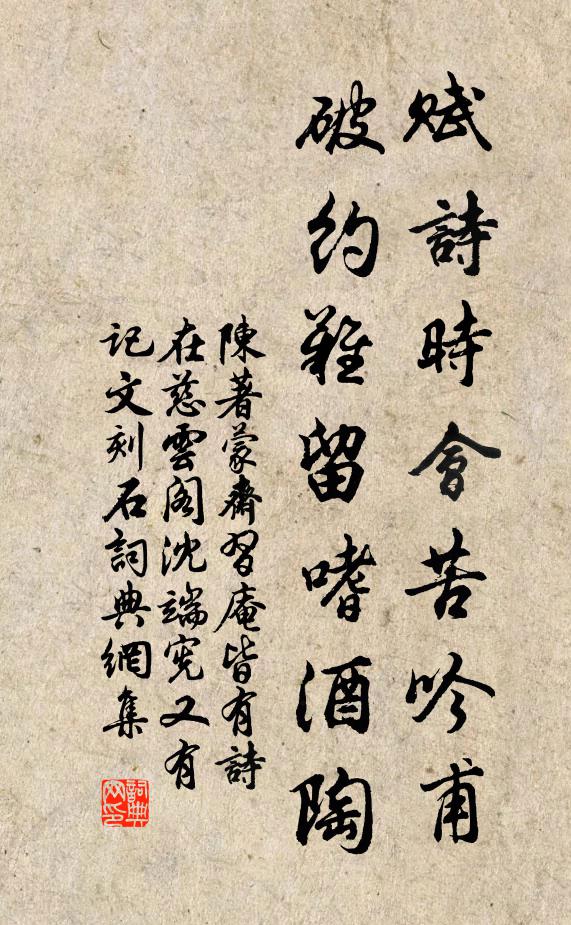 賦詩時會苦吟甫
破約難留嗜酒陶
陳著蒙齋習庵皆有詩
在慈雲閣沈端宪又有
记文刻石詞典網集
詞典网印